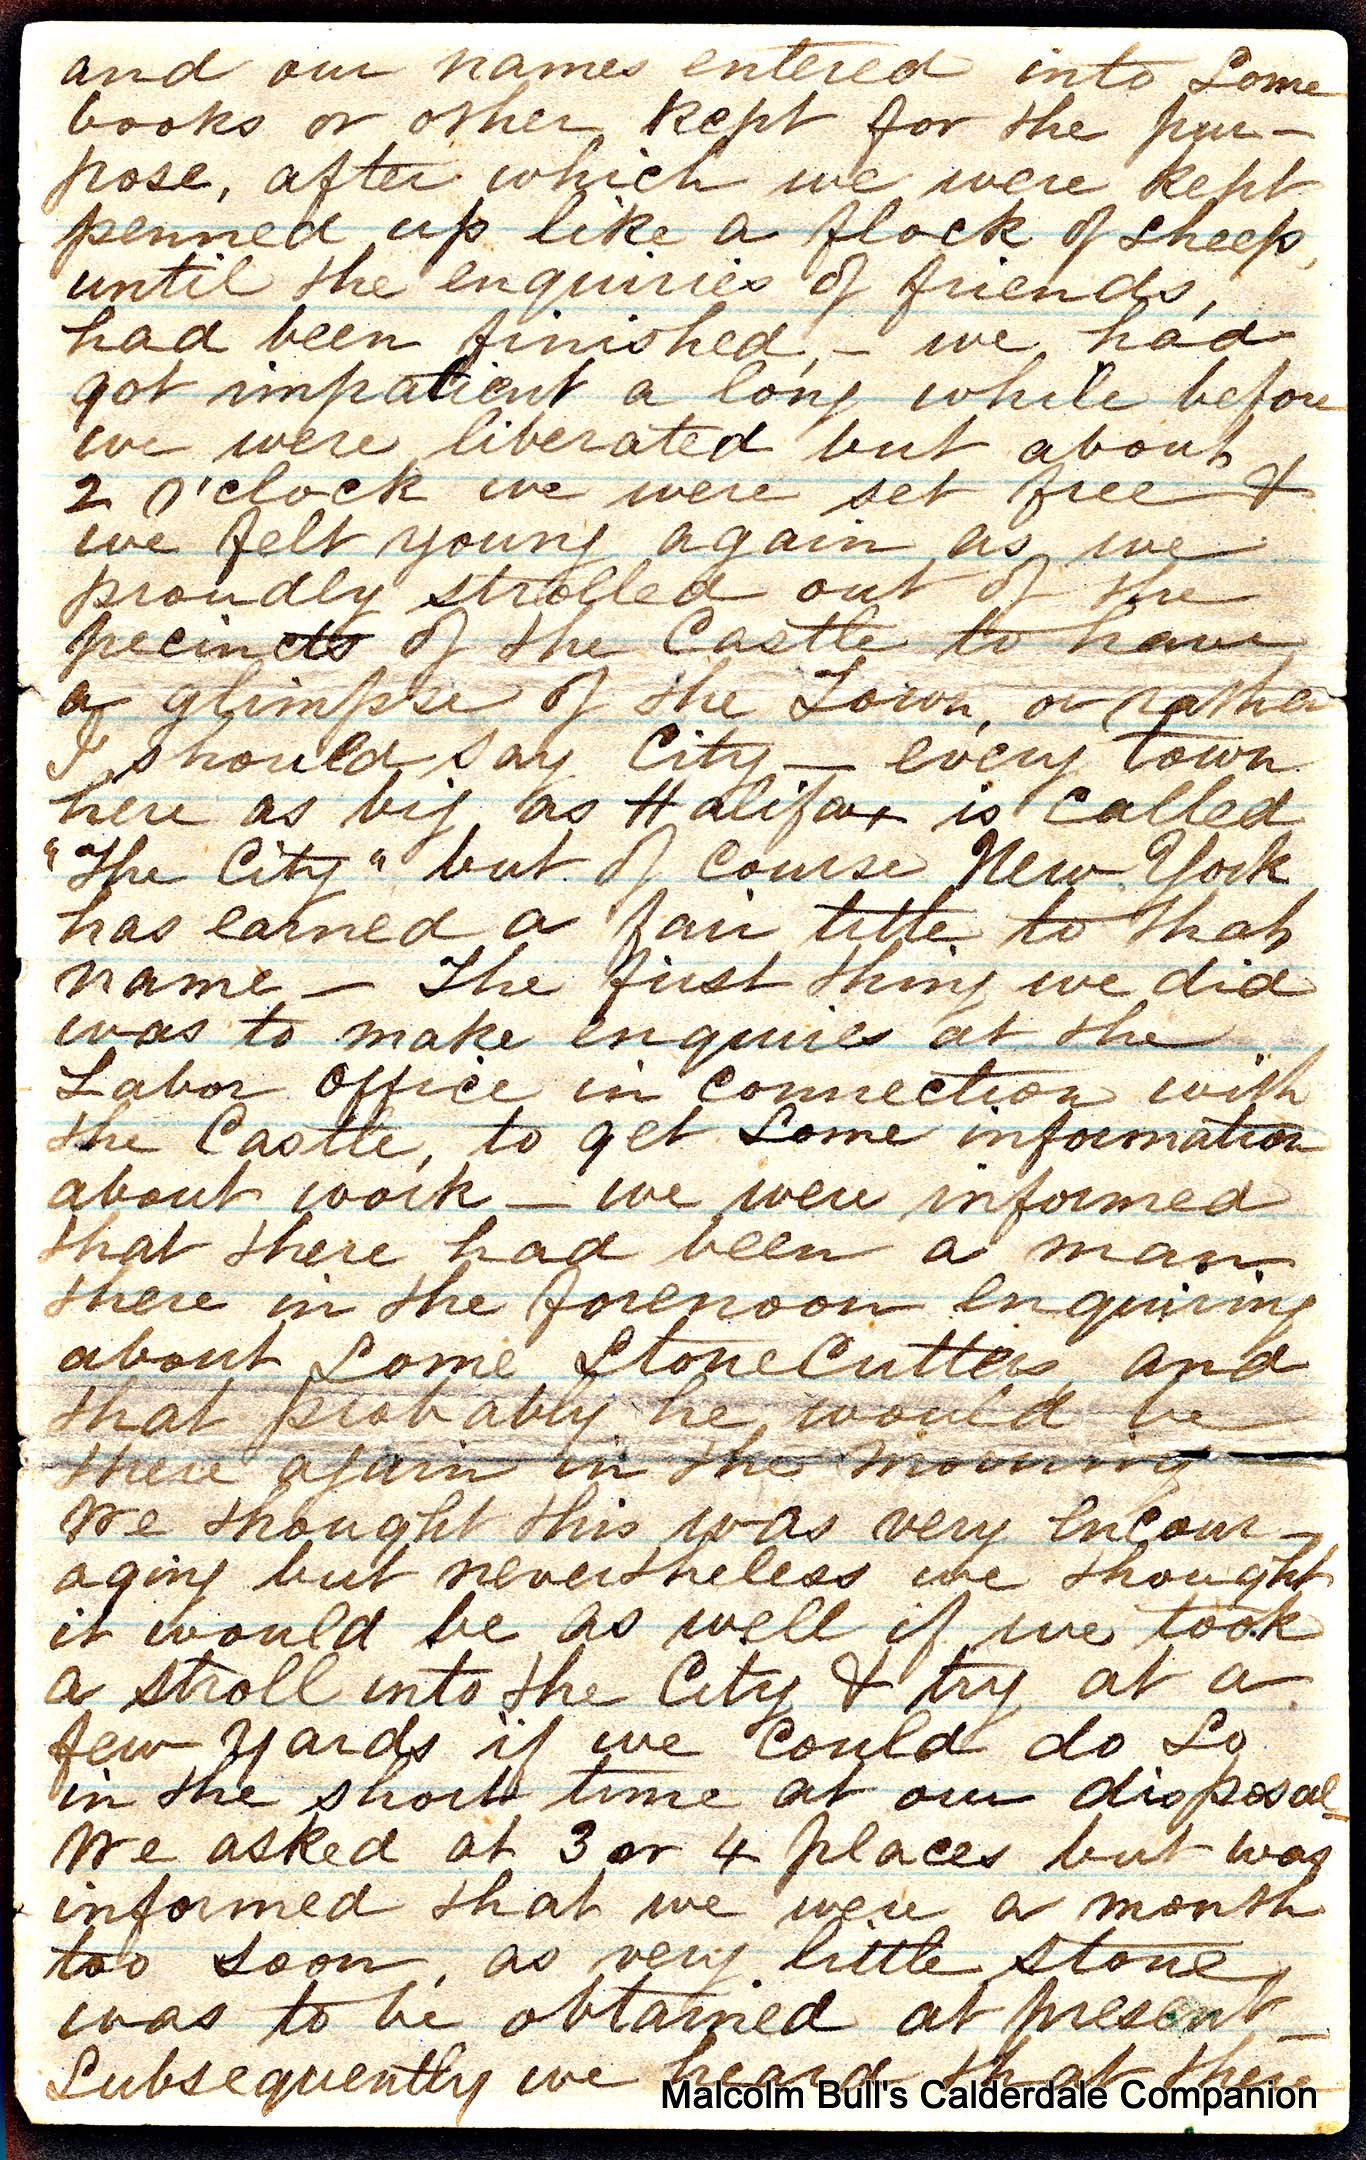 and our names entered into some
books or other, kept for the pur-
pose, after which we were kept
penned up like a flock of sheep,
until the enquiries of friends,
had been finished, - we had
got impatient a long while before
we were liberated but about
2 o'clock we were set free &
we felt young again as we
proudly strolled out of the
pecincts of the Castle to have
a glimpse of the Town, or rather
I should say City - every town
here as big as Halifax is called
"The City" but of course New York
has earned a fair title to that
name - The first thing we did
was to make enquires at the
Labor Office in connection with
the Castle, to get some information
about work - we were informed
that there had been a man
there in the forenoon enquiring
about some StoneCutters and
that probably he would be
there again in the morning
We thought this was very encour-
aging but nevertheless we thought
it would be as well if we took
a stroll into the City & try at a
few yards if we could do so
in the short time at our disposal-
We asked at 3 or 4 places but was
informed that we were a month
too soon, as very little stone
was to be obtained at present -
Subsequently we heard that there
Malcolm Bull's Calderdale Companion